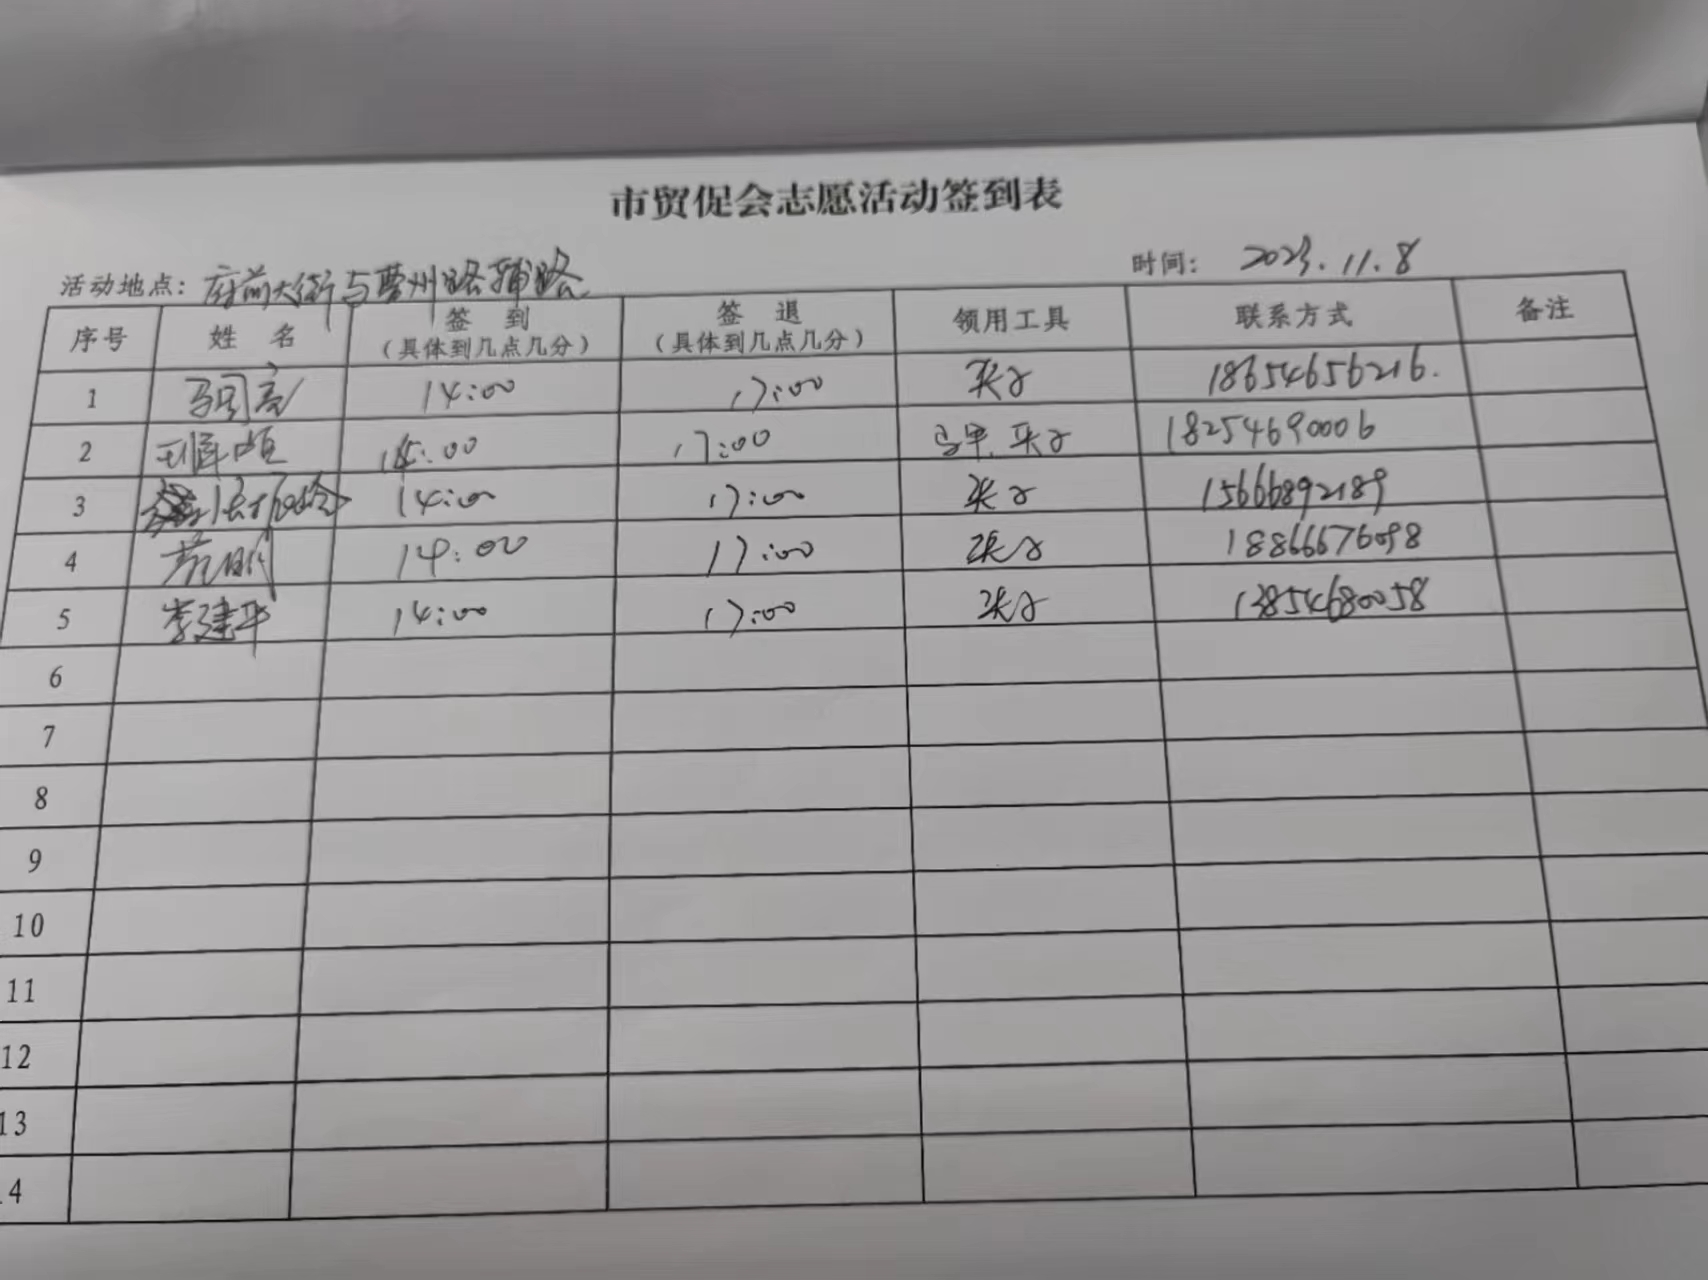 市贸促会志愿活动签到表
活动地点：府前大街与曹州路辅路 时间：2023.11.8
序号 姓 名 签 到（具体到几点几分） 签 退（具体到几点几分） 领用工具 联系方式 备注
1 14:00 17:00 夹子 18654656216.
2 14:00 17:00 马甲、夹子 18254690006
3 14:00 17:00 夹子 15666892189
4 14:00 17:00 夹子 18866676098
5 李建华 14:00 17:00 夹子 13854680058
6
7
8
9
10
11
12
13
14